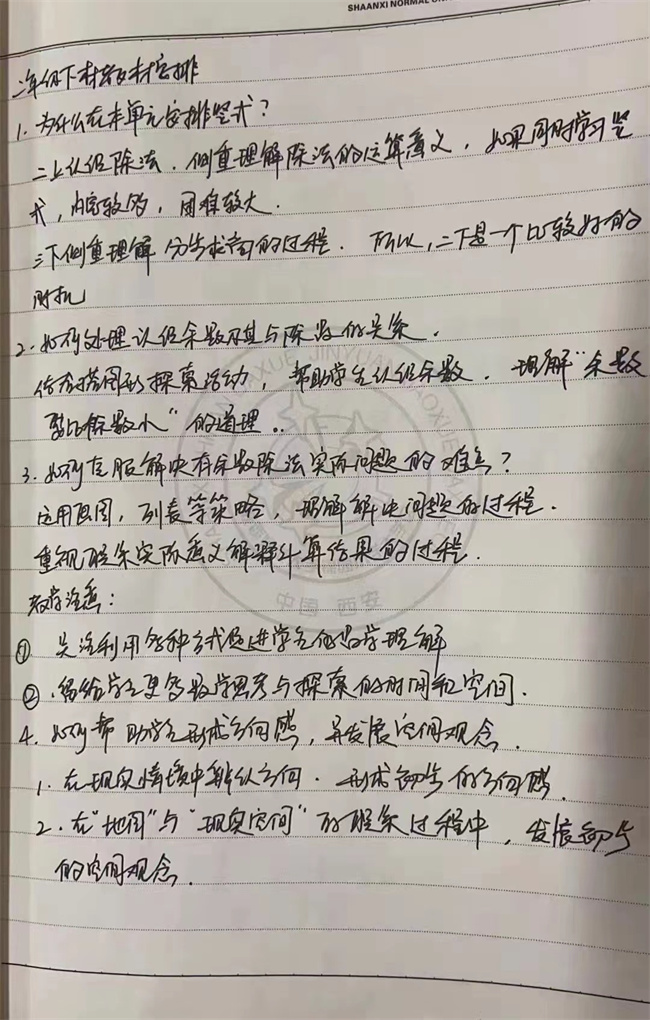 SHAANXI NORMAL
二年级下册教材安排
1. 为什么在本单元安排竖式?
二上认识除法. 侧重理解除法的运算意义, 如果同时学习竖
式, 内容较多, 困难较大.
三下侧重理解分步求商的过程. 所以, 二下是一个比较好的
时机
2. 如何处理认识余数及其与除数的关系.
借助搭图形探索活动, 帮助学生认识余数. 理解“余数
要比除数小”的道理..
3. 如何克服解决有余数除法实际问题的难点?
运用画图, 列表等策略, 理解解决问题的过程.
重视联系实际意义解释计算结果的过程.
教学注意:
① 关注利用各种方式促进学生的数学理解
② 留给学生更多数学思考与探索的时间和空间.
4. 如何帮助学生形成方向感, 并发展空间观念.
1. 在现实情境中辨认方向. 形成初步的方向感.
2. 在“地图”与“现实空间”的联系过程中, 发展初步
的空间观念.
中国 西安